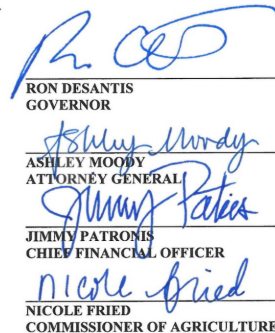 RON DESANTIS
GOVERNOR
Ashley Moody
ASHLEY MOODY
ATTORNEY GENERAL
Jimmy Patronis
JIMMY PATRONIS
CHIEF FINANCIAL OFFICER
Nicole Fried
NICOLE FRIED
COMMISSIONER OF AGRICULTURE